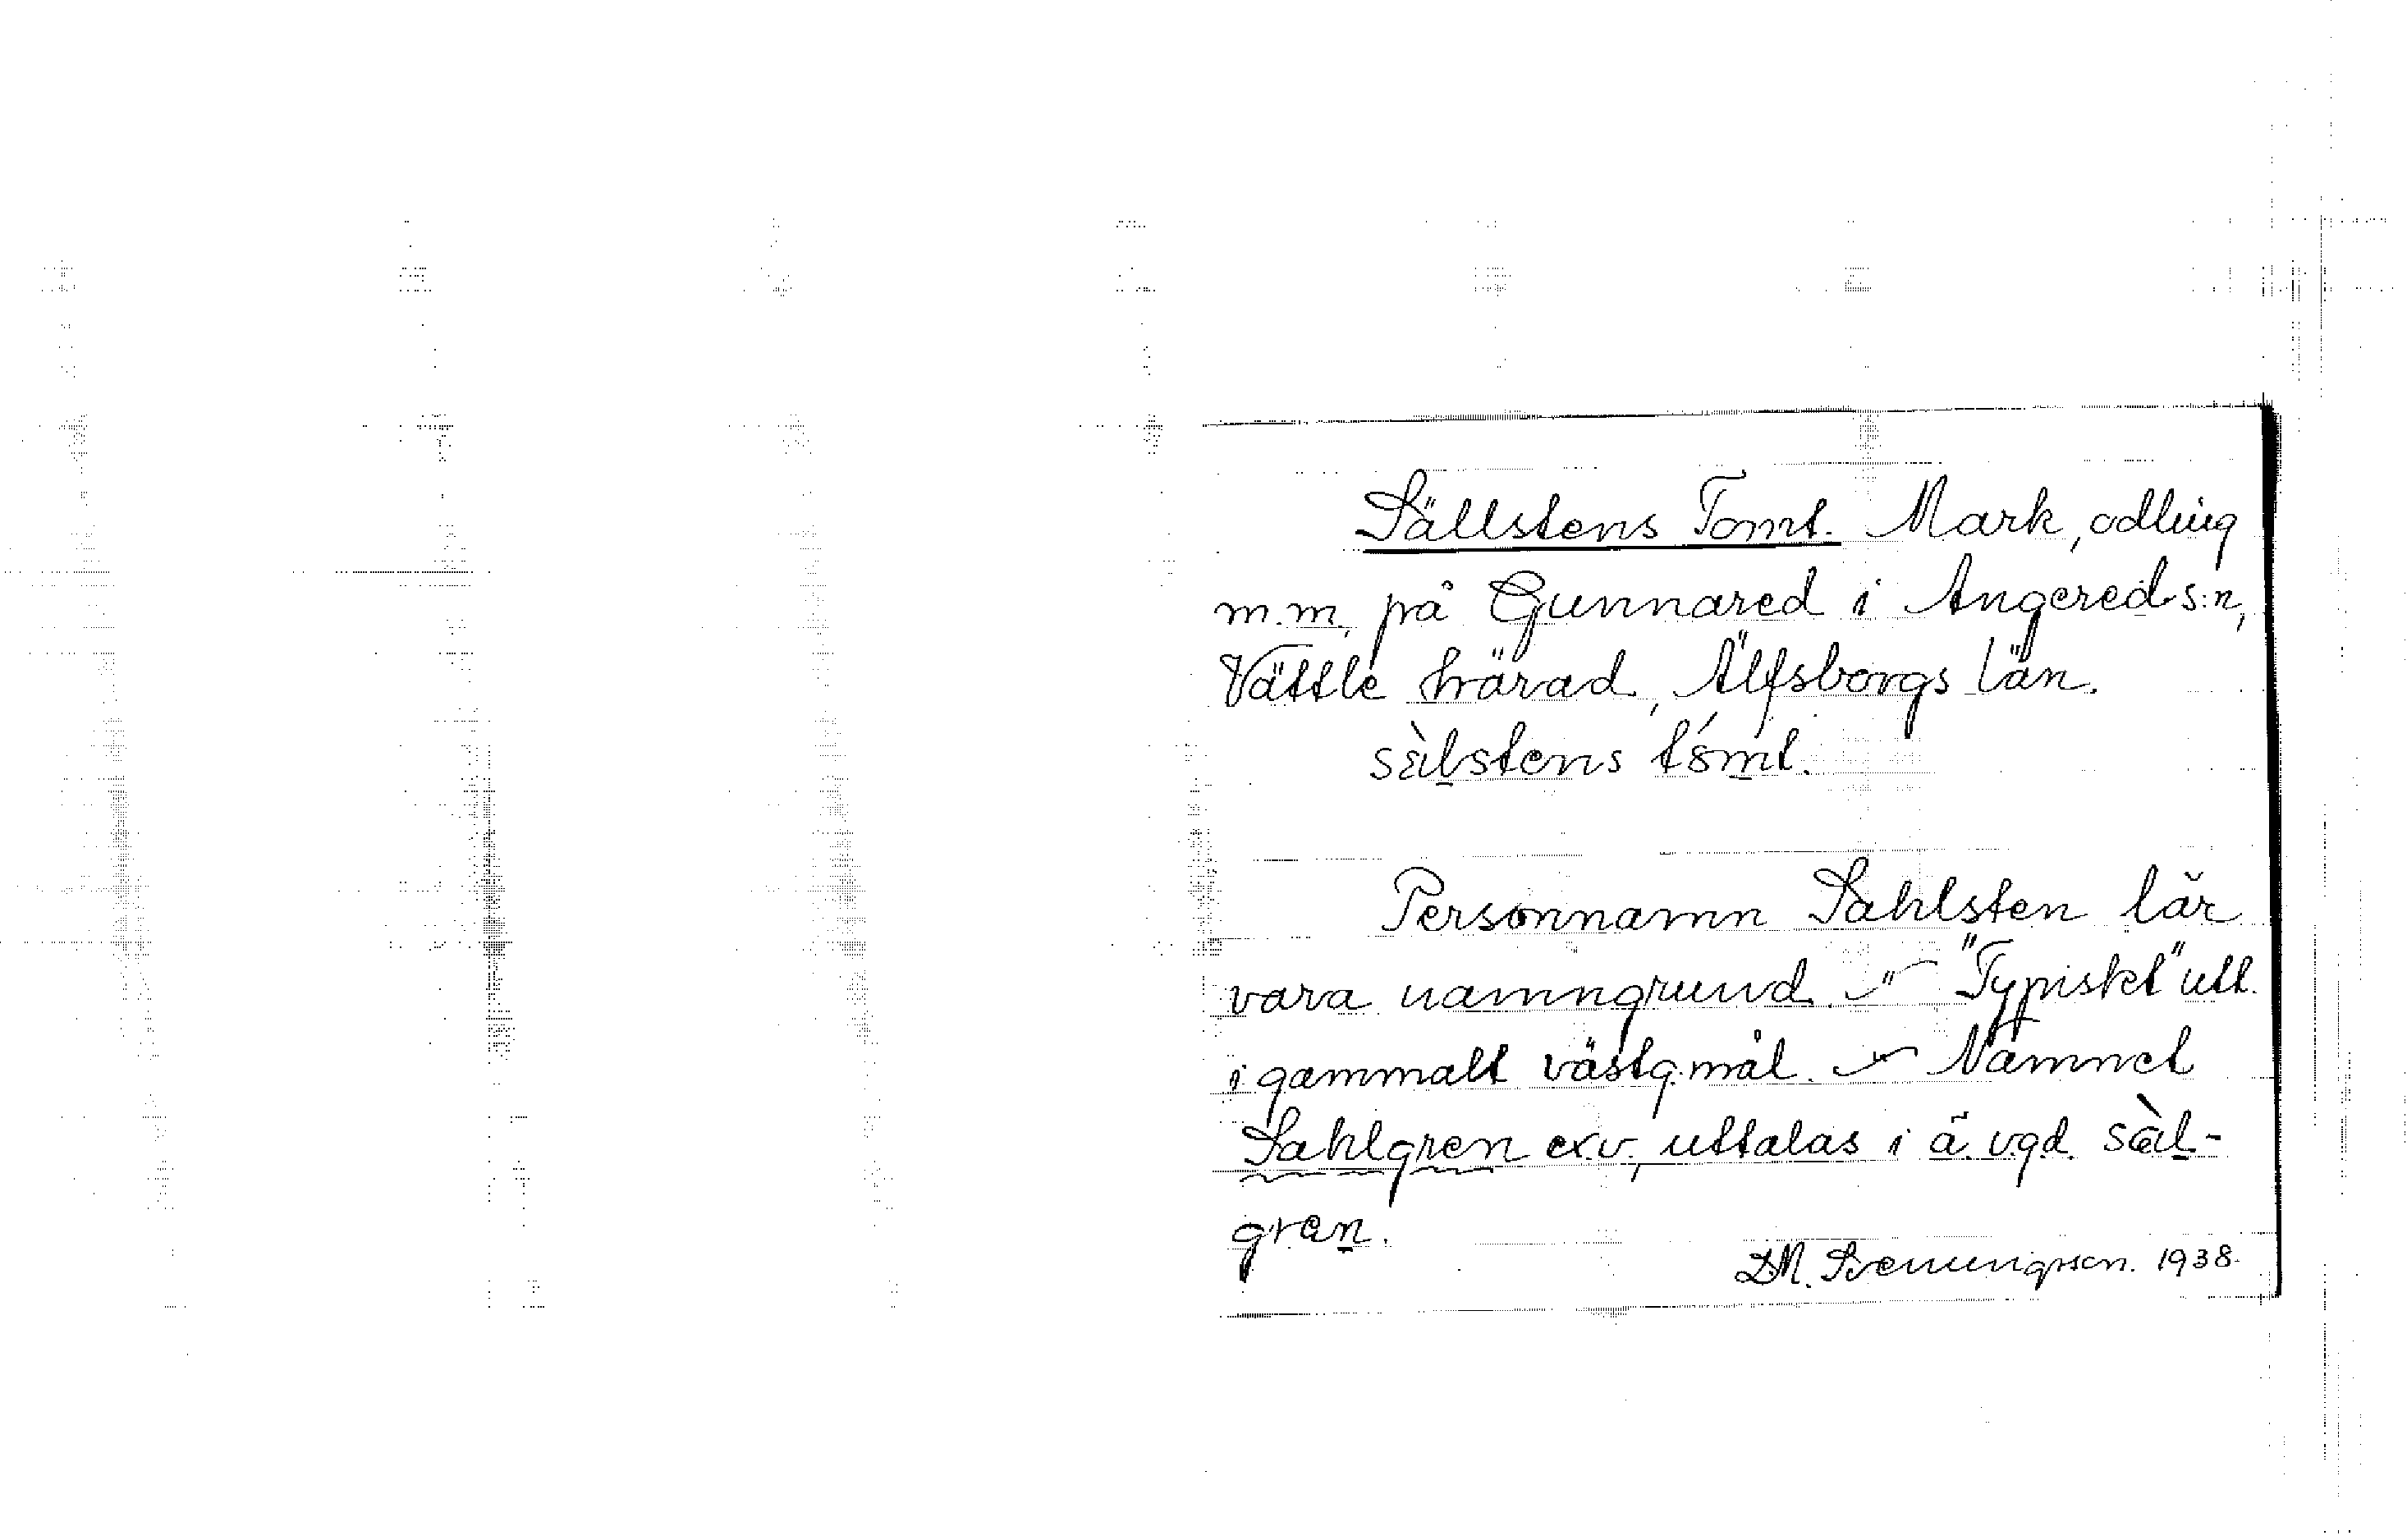 Sällstens Tomt. Mark, odling
m.m. på Gunnared i Angereds:n,
Vättle härad, Älfsborgs län.
sälstens tomt.
Personnamn Sahlsten lär
vara namngrund. — "Typiskt" utt.
i gammalt västg.mål. — Namnet
Sahlgren ex.v. uttalas i ä. vgd. säl-
gren.
1938.